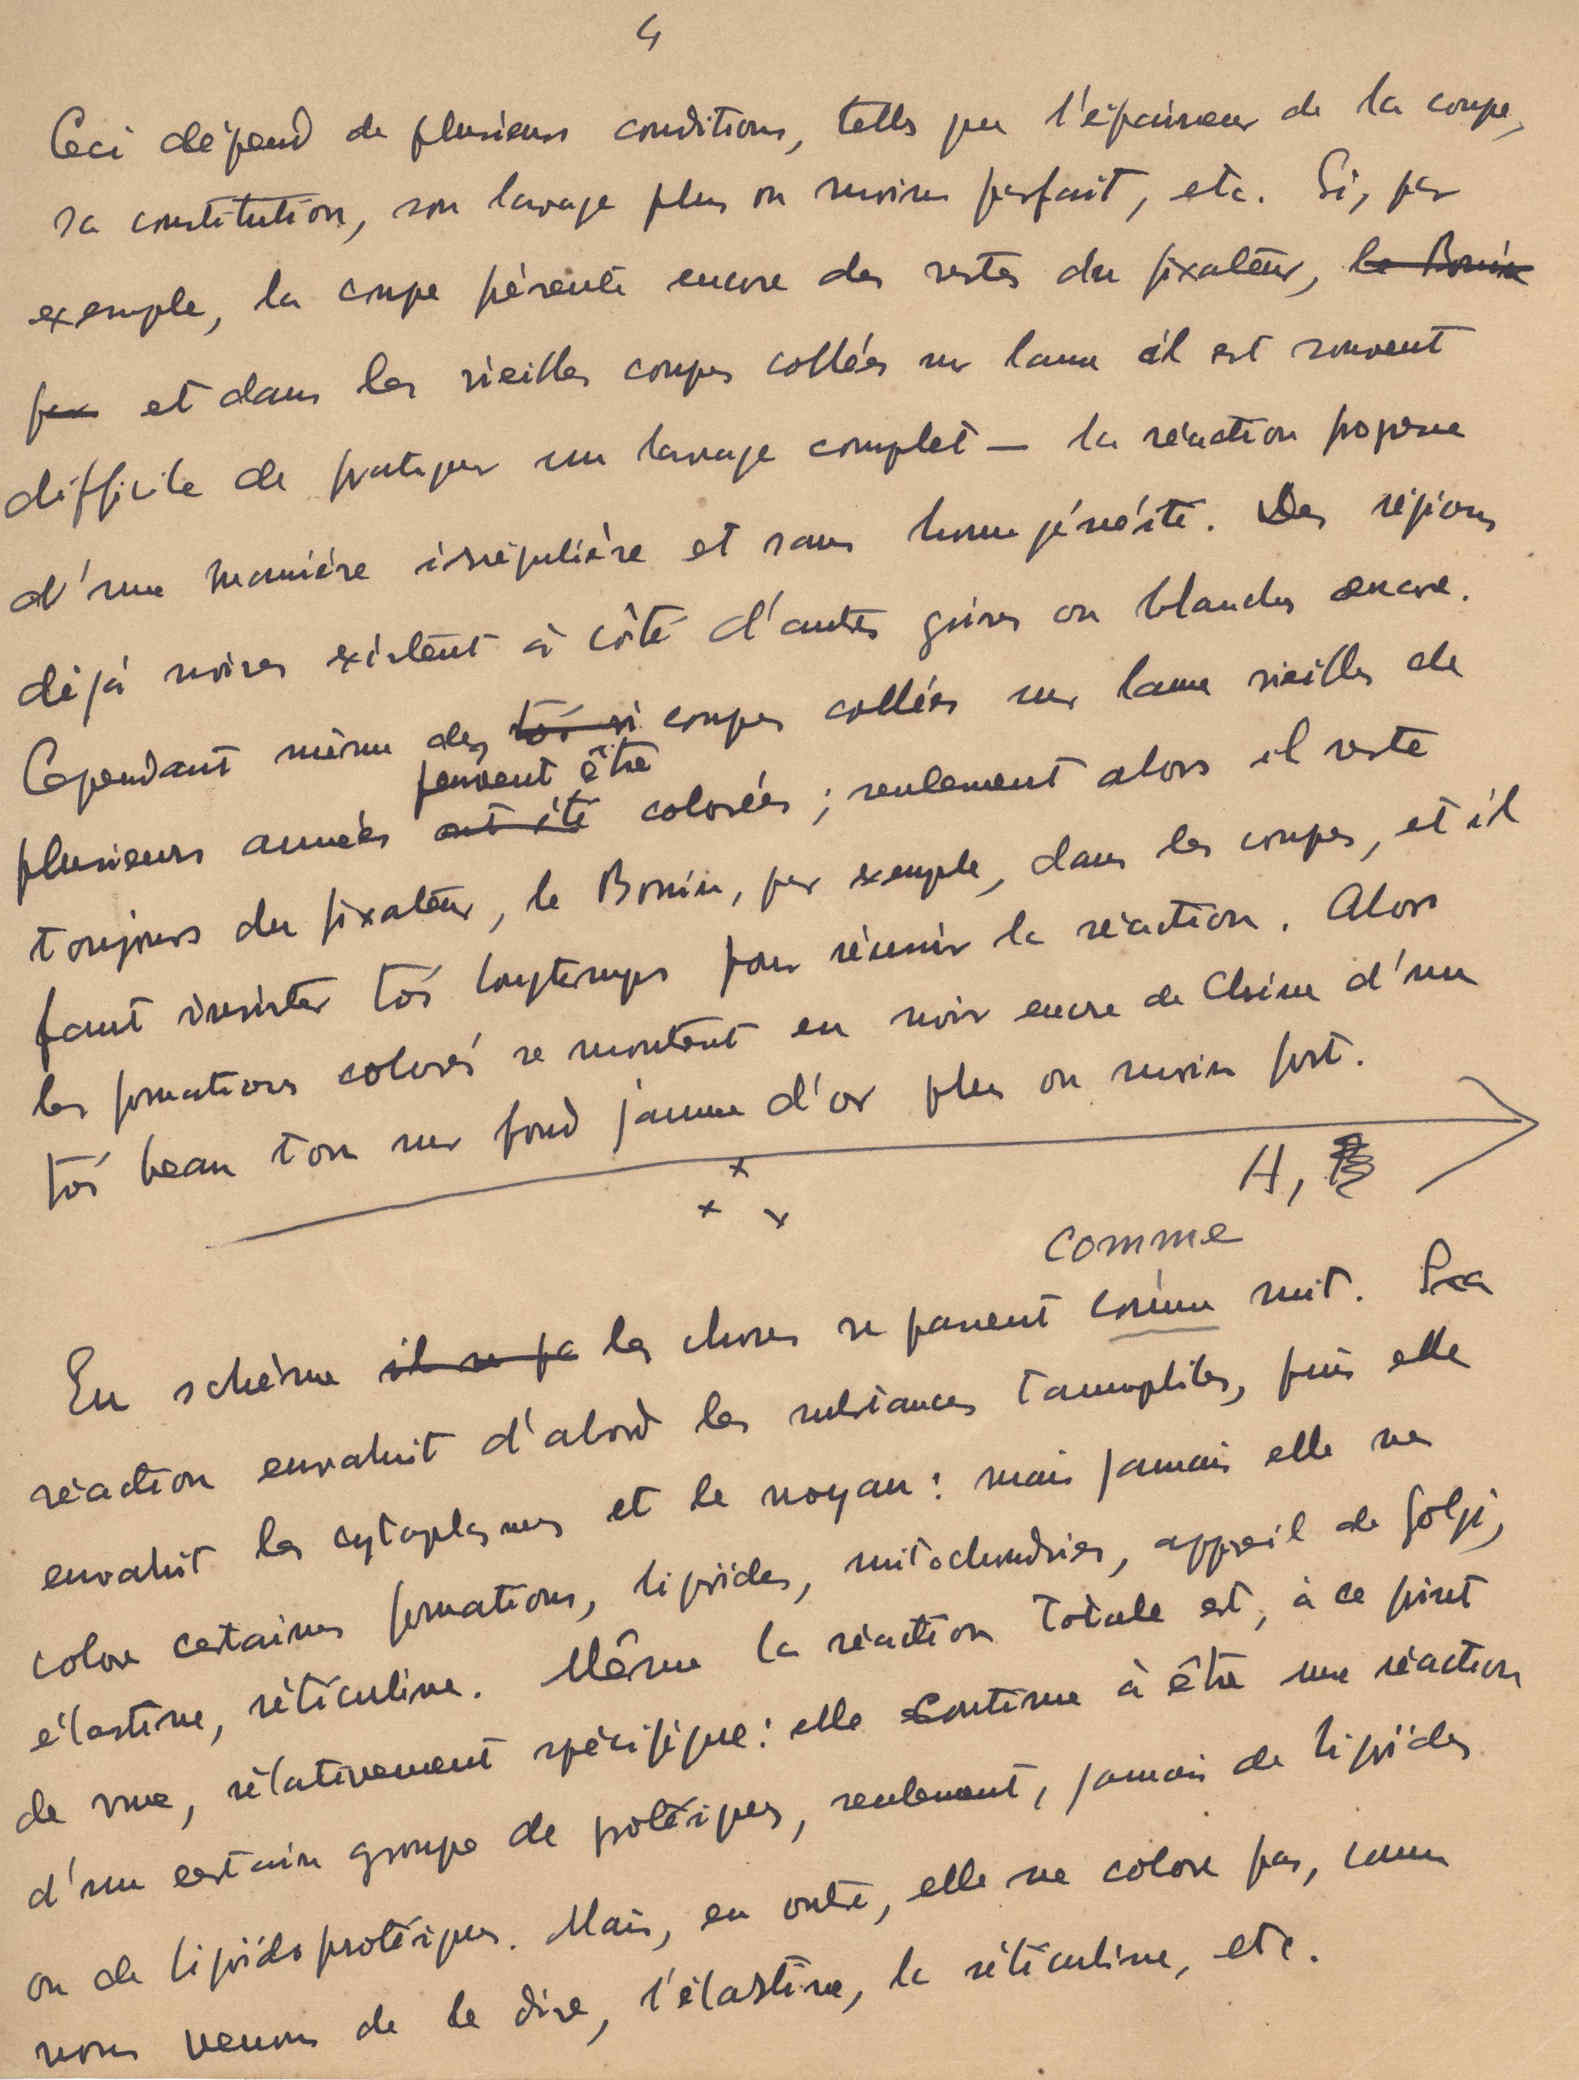 4
Ceci dépend de plusieurs conditions, tells que l'épaisseur de la coupe,
sa constitution, son lavage plus ou moins parfait, etc. Si, par
exemple, la coupe présente encore des restes du fixateur, le Bouin
par et dans les vieilles coupes collées sur lame il est souvent
difficile de pratiquer un lavage complet — la réaction progresse
d'une manière irrégulière et sans homogénéité. Des régions
déjà noires existent à côté d'autres grises ou blanches encore.
Cependant même des très vi coupes collées sur lame vieilles de
peuvent être
plusieurs années ont été colorées ; seulement alors il reste
toujours du fixateur, le Bouin, par exemple, dans les coupes, et il
faut insister très longtemps pour réussir la réaction. Alors
les formations colorés se montent en noir encre de Chine d'un
très beau ton sur fond jaune d'or plus ou moins fort.
H,
comme
En schème il se pa les choses se passent comme suit. La
réaction envahit d'abord les substances tannophiles, puis elle
envahit les cytoplasmes et le noyau : mais jamais elle ne
colore certaines formations, lipoïdes, mitochondries, appareil de Golgi,
élastine, réticuline. Même la réaction totale est, à ce point
de vue, rélativement spécifique : elle continue à être une réaction
d'un certain groupe de protéiques, seulement, jamais de lipoïdes
ou de lipoïdoprotéiques. Mais, en outre, elle ne colore pas, comme
nous venons de le dire, l'élastine, la réticuline, etc.